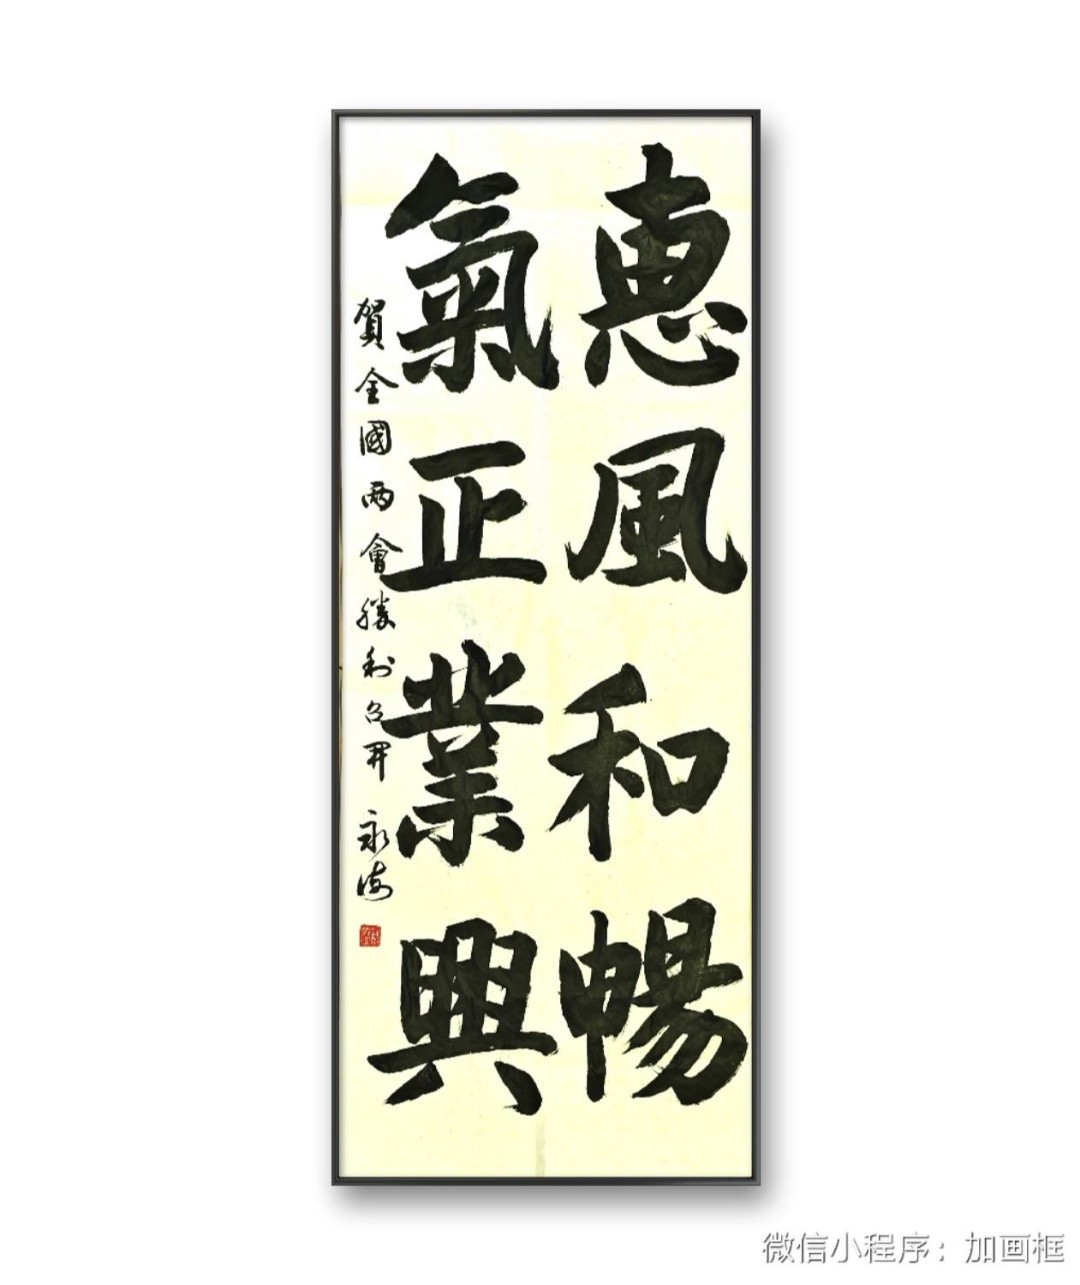 惠風和暢
氣正業興
賀全國两會勝利召開 永海
微信小程序：加画框